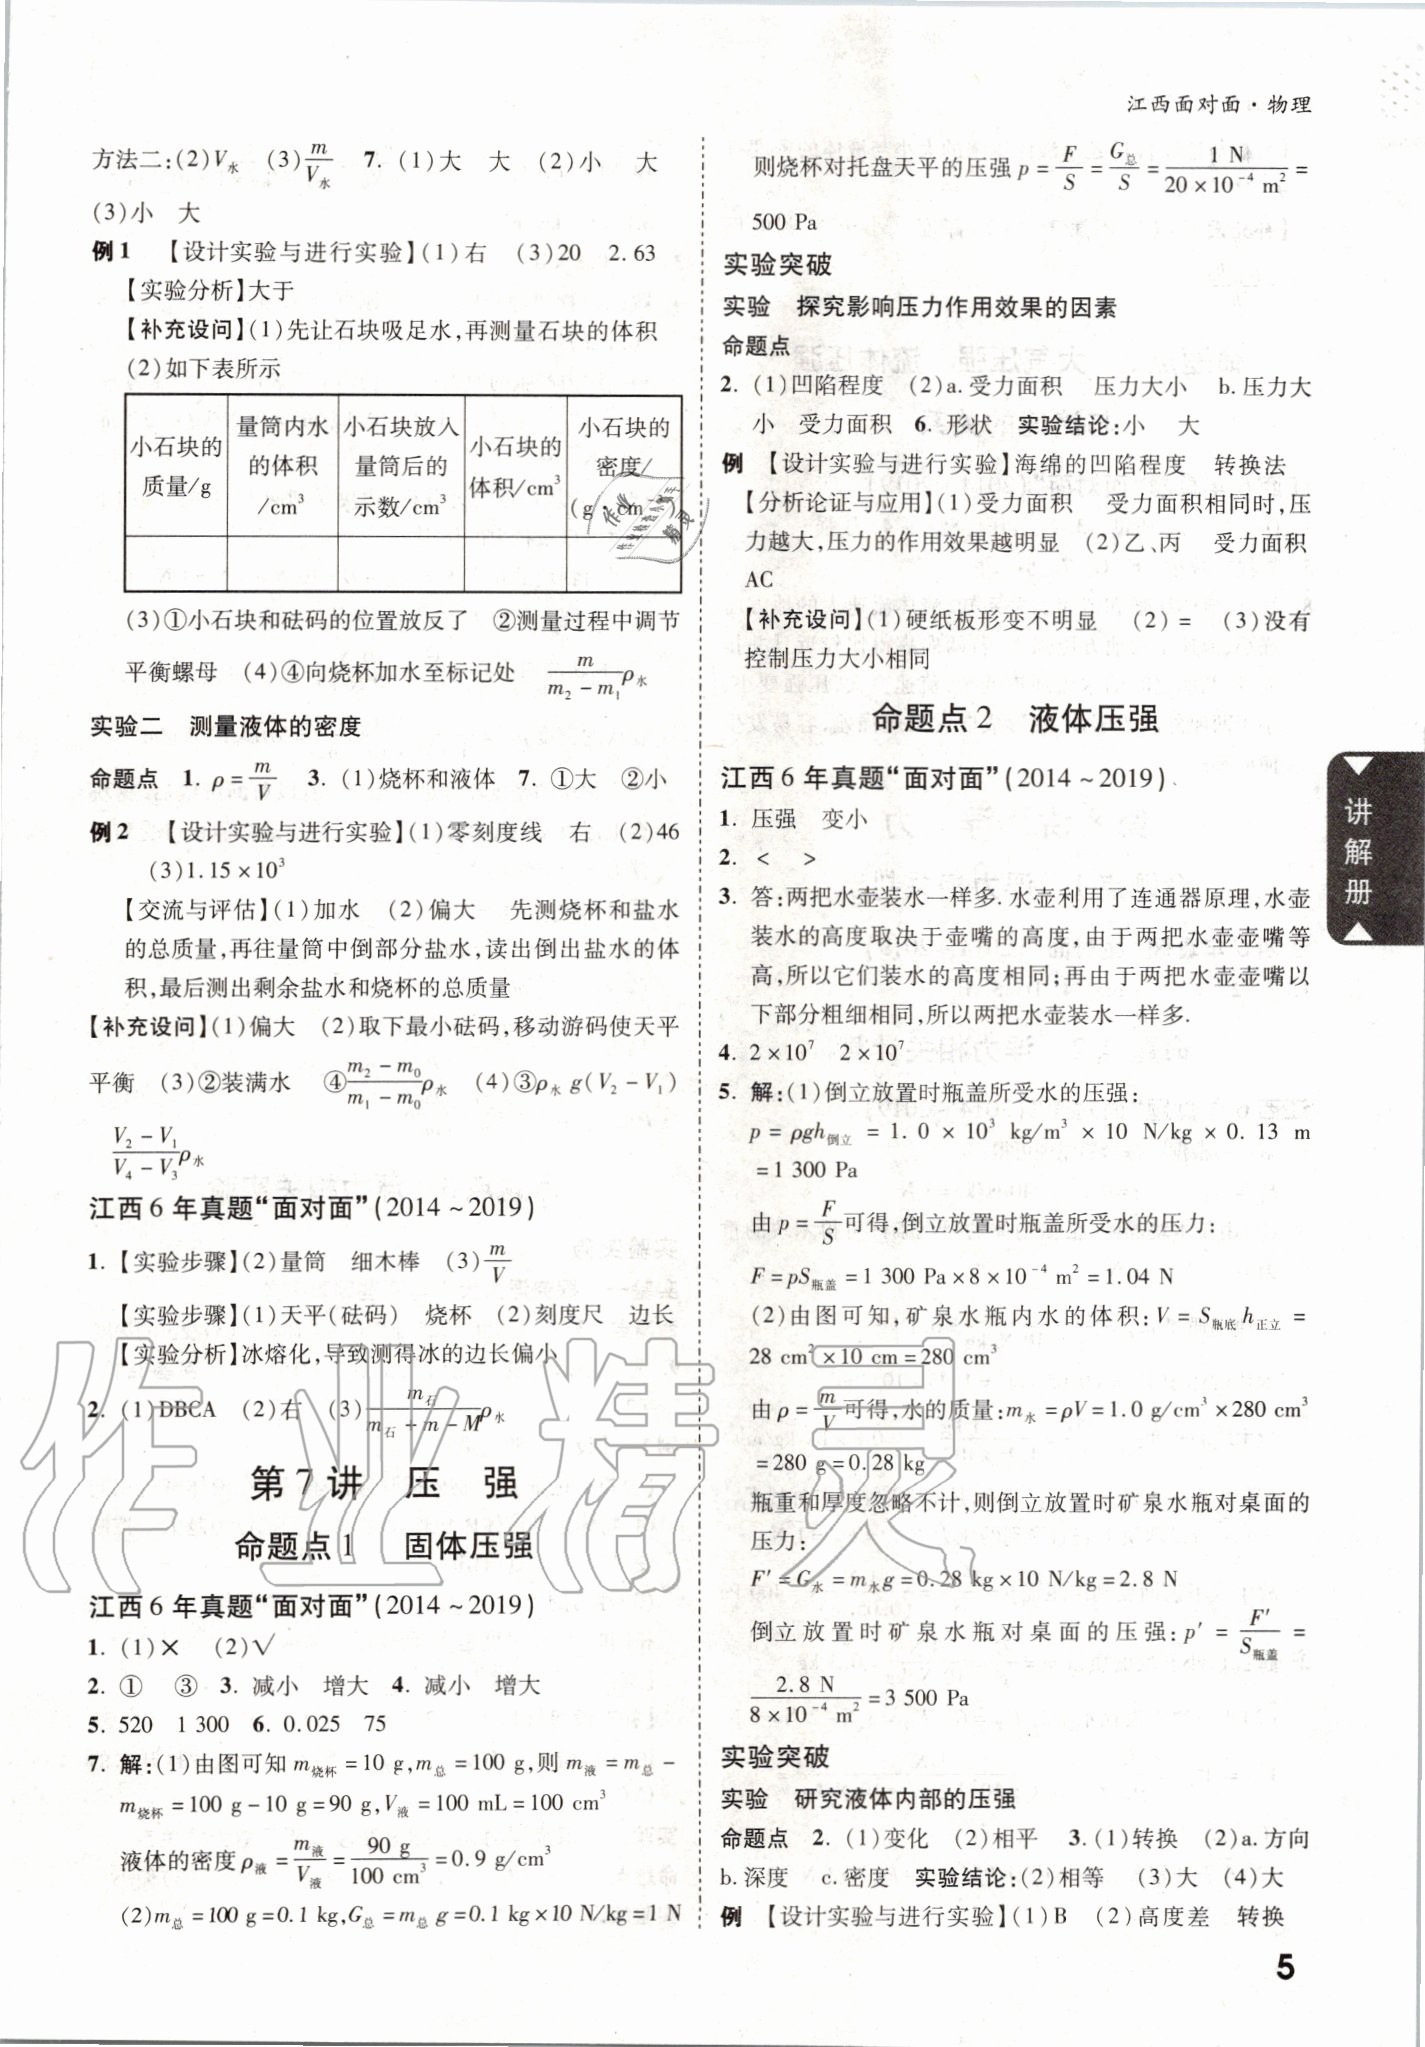 江西面对面·物理
方法二:(2)V水 (3)m/V水 7. (1)大 大 (2)小 大
(3)小 大
例1 【设计实验与进行实验】(1)右 (3)20 2.63
【实验分析】大于
【补充设问】(1)先让石块吸足水,再测量石块的体积
(2)如下表所示
小石块的质量/g 量筒内水的体积/cm³ 小石块放入量筒后的示数/cm³ 小石块的体积/cm³ 小石块的密度/(g·cm )
(3)①小石块和砝码的位置放反了 ②测量过程中调节
平衡螺母 (4)④向烧杯加水至标记处 m/(m₂-m₁)ρ水
实验二 测量液体的密度
命题点 1. ρ=m/V 3. (1)烧杯和液体 7. ①大 ②小
例2 【设计实验与进行实验】(1)零刻度线 右 (2)46
(3)1.15×10³
【交流与评估】(1)加水 (2)偏大 先测烧杯和盐水
的总质量,再往量筒中倒部分盐水,读出倒出盐水的体
积,最后测出剩余盐水和烧杯的总质量
【补充设问】(1)偏大 (2)取下最小砝码,移动游码使天平
平衡 (3)②装满水 ④(m₂-m₀)/(m₁-m₀)ρ水 (4)③ρ水g(V₂-V₁)
(V₂-V₁)/(V₄-V₃)ρ水
江西6年真题“面对面”(2014~2019)
1. 【实验步骤】(2)量筒 细木棒 (3)m/V
【实验步骤】(1)天平(砝码) 烧杯 (2)刻度尺 边长
【实验分析】冰熔化,导致测得冰的边长偏小
2. (1)DBCA (2)右 (3)m石/(m石+m-M)ρ水
第7讲 压 强
命题点1 固体压强
江西6年真题“面对面”(2014~2019)
1. (1)× (2)√
2. ① ③ 3. 减小 增大 4. 减小 增大
5. 520 1 300 6. 0.025 75
7. 解:(1)由图可知m烧杯=10 g,m总=100 g,则m液=m总-
m烧杯=100 g-10 g=90 g,V液=100 mL=100 cm³
液体的密度ρ液=m液/V液=90 g/100 cm³=0.9 g/cm³
(2)m总=100 g=0.1 kg,G总=m总g=0.1 kg×10 N/kg=1 N
则烧杯对托盘天平的压强p=F/S=G总/S=1 N/(20×10⁻⁴ m²)=
500 Pa
实验突破
实验 探究影响压力作用效果的因素
命题点
2. (1)凹陷程度 (2)a.受力面积 压力大小 b.压力大
小 受力面积 6. 形状 实验结论:小 大
例 【设计实验与进行实验】海绵的凹陷程度 转换法
【分析论证与应用】(1)受力面积 受力面积相同时,压
力越大,压力的作用效果越明显 (2)乙、丙 受力面积
AC
【补充设问】(1)硬纸板形变不明显 (2)= (3)没有
控制压力大小相同
命题点2 液体压强
江西6年真题“面对面”(2014~2019)
1. 压强 变小
2. < >
3. 答:两把水壶装水一样多.水壶利用了连通器原理,水壶
装水的高度取决于壶嘴的高度,由于两把水壶壶嘴等
高,所以它们装水的高度相同;再由于两把水壶壶嘴以
下部分粗细相同,所以两把水壶装水一样多.
4. 2×10⁷ 2×10⁷
5. 解:(1)倒立放置时瓶盖所受水的压强:
p=ρgh倒立=1.0×10³ kg/m³×10 N/kg×0.13 m
=1 300 Pa
由p=F/S可得,倒立放置时瓶盖所受水的压力:
F=pS瓶盖=1 300 Pa×8×10⁻⁴ m²=1.04 N
(2)由图可知,矿泉水瓶内水的体积:V=S瓶底h正立=
28 cm²×10 cm=280 cm³
由ρ=m/V可得,水的质量:m水=ρV=1.0 g/cm³×280 cm³
=280 g=0.28 kg
瓶重和厚度忽略不计,则倒立放置时矿泉水瓶对桌面的
压力:
F′=G水=m水g=0.28 kg×10 N/kg=2.8 N
倒立放置时矿泉水瓶对桌面的压强:p′=F′/S瓶盖=
2.8 N/(8×10⁻⁴ m²)=3 500 Pa
实验突破
实验 研究液体内部的压强
命题点 2. (1)变化 (2)相平 3. (1)转换 (2)a.方向
b.深度 c.密度 实验结论:(2)相等 (3)大 (4)大
例 【设计实验与进行实验】(1)B (2)高度差 转换
讲解册
5
作业精灵